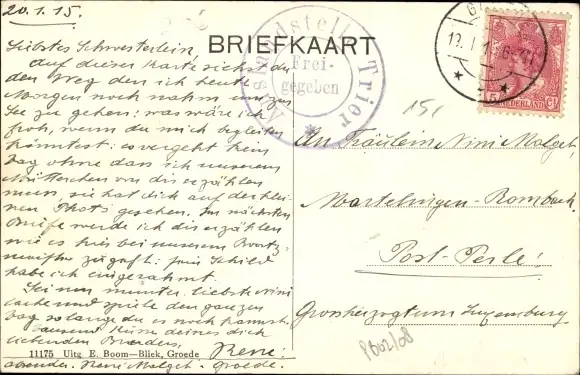 20.1.15.
Liebstes Schwesterlein,
auf dieser Karte siehst du
den Weg den ich heute
Morgen noch nahm um zur
See zu gehen; was wäre ich
froh, wenn du mich begleiten
könntest: es vergeht kein
Tag ohne dass ich unserem
Mütterchen von dir erzählen
muss, sie hat dich auf der klei-
nen Phot. gesehen. Im nächsten
Briefe werde ich dir erzählen
wie es hier bei unserem
zugeht: sein Schild
habe ich eingerahmt.
Sei nun munter, liebste Nini
lache und spiele den ganzen
Tag solange du es noch kannst.
Tausend Küsse deines dich
liebenden Bruders,
René.
11175 Uitg E. Boom—Bliek, Groede
René Malget - Groede.
BRIEFKAART
Auslandstelle Trier
Frei-
gegeben
15
NEDERLAND
An Fräulein Nini Malget,
Martelingen-Rombach
Post-Perlé!
Grossherzogtum Luxemburg